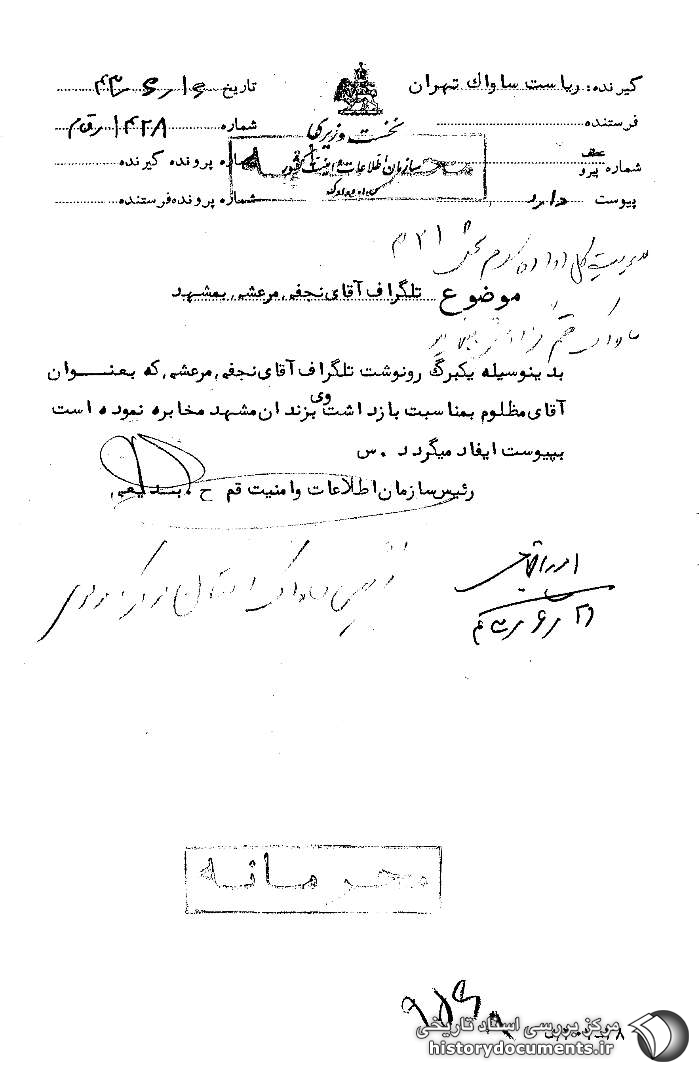 گیرنده: ریاست ساواک تهران
تاریخ ۴۳/۶/۱۶
فرستنده
نخست وزیری
شماره ۱۴۲۸/رقم
سازمان اطلاعات و امنیت کشور
محرمانه
شماره پیرو
شماره پرونده گیرنده
پیوست دارد
شماره پرونده فرستنده
مدیریت کل اداره سوم بخش ۳۲۱
موضوع تلگراف آقای نجفی مرعشی بمشهد
ساواک قم
بدینوسیله یکبرگ رونوشت تلگراف آقای نجفی مرعشی که بعنوان
آقای مظلوم بمناسبت بازداشت وی بزندان مشهد مخابره نموده است
بپیوست ایفاد میگردد .س
رئیس سازمان اطلاعات و امنیت قم ح. بدیعی
رئیس ساواک استان مرکز. مولوی
۴۳/۶/۲۱
محرمانه
مرکز بررسی اسناد تاریخی
historydocuments.ir